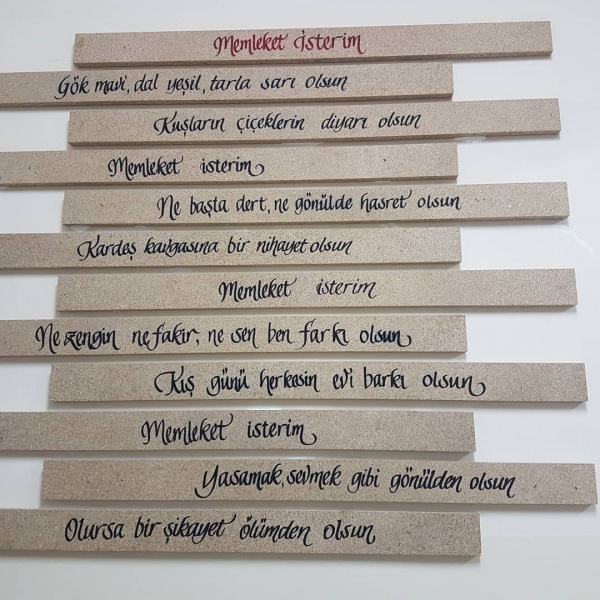 Memleket İsterim
Gök mavi, dal yeşil, tarla sarı olsun
Kuşların çiçeklerin diyarı olsun
Memleket isterim
Ne başta dert, ne gönülde hasret olsun
Kardeş kavgasına bir nihayet olsun
Memleket isterim
Ne zengin ne fakir, ne sen ben farkı olsun
Kış günü herkesin evi barkı olsun
Memleket isterim
Yaşamak, sevmek gibi gönülden olsun
Olursa bir şikayet ölümden olsun